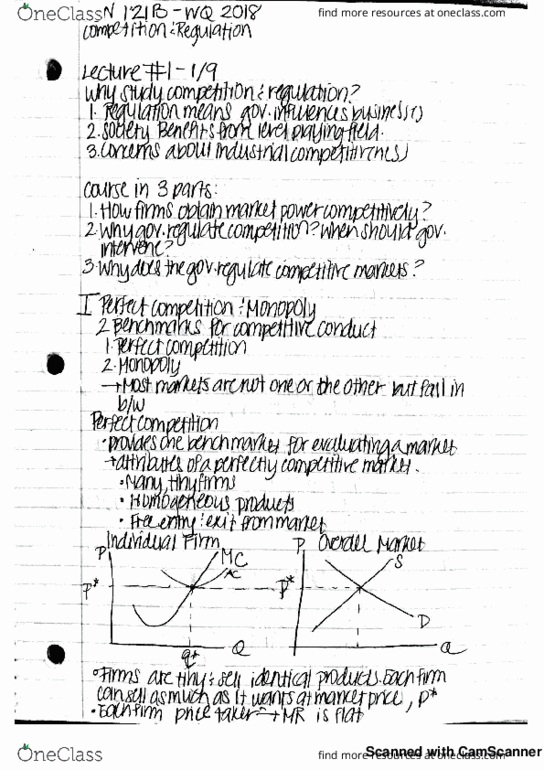 OneClass
find more resources at oneclass.com
N 121B - WQ 2018
Competition & Regulation
Lecture #1 - 1/9
Why study competition & regulation?
1. Regulation means gov. influences business(s)
2. Society Benefits from level playing field.
3. Concerns about industrial competitive(ness)
course in 3 parts:
1. How firms obtain market power competitively?
2. Why gov. regulate competition? When should gov.
intervene?
3. Why does the gov. regulate competitive markets?
I Perfect competition & Monopoly
2 Benchmarks for competitive conduct
1. Perfect competition
2. Monopoly
→ Most markets are not one or the other but fall in
b/w
Perfect competition
• provides one benchmarket for evaluating a market
→ attributes of a perfectly competitive market.
• Many, tiny firms
• Homogeneous products
• Free entry & exit from market
Individual Firm
Overall Market
P MC AC P* q* Q
P S P* D Q
• Firms are tiny & sell identical products. Each firm
can sell as much as it wants at market price, P*
• Each firm price taker → MR is flat
Scanned with CamScanner
OneClass
find more resources at oneclass.com